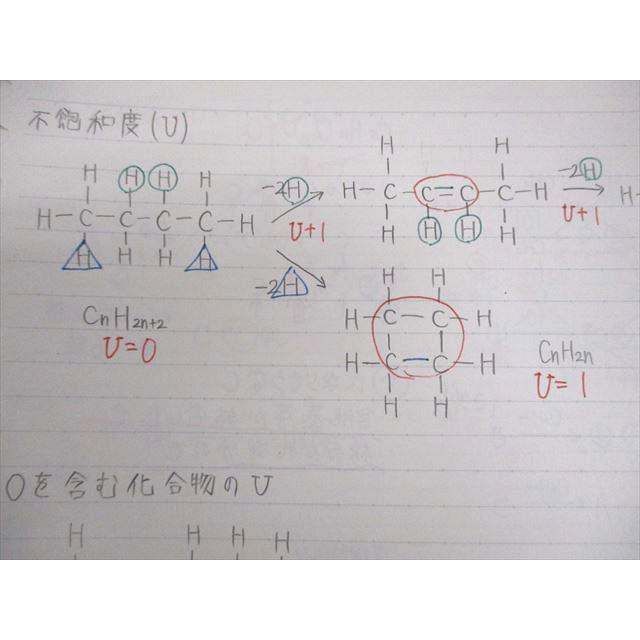 不飽和度(U)
H H H H
H-C-C-C-C-H
H H H H
CnH2n+2
U=0
-2H
U+1
-2H
H H
H-C-C=C-C-H
H H H H
-2H
U+1
H-
H H
H-C-C-H
H-C-C-H
H H
CnH2n
U=1
Oを含む化合物のU
H H H H